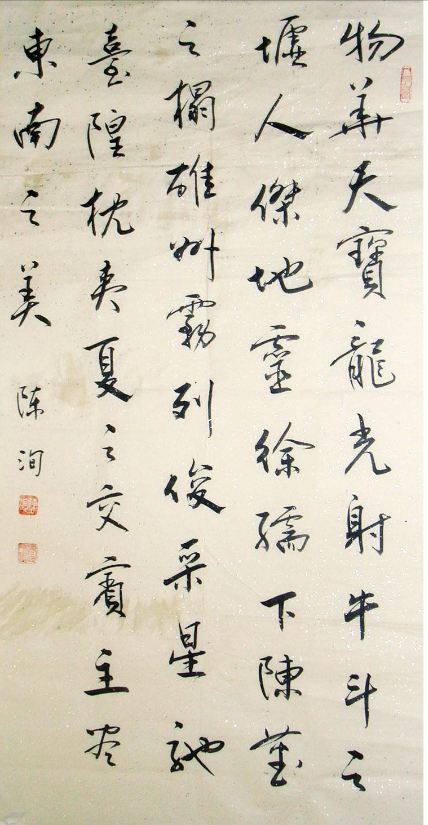 物華天寶龍光射牛斗之
墟人傑地靈徐孺下陳蕃
之榻雄州霧列俊采星馳
臺隍枕夷夏之交賓主尽
東南之美
陈洵